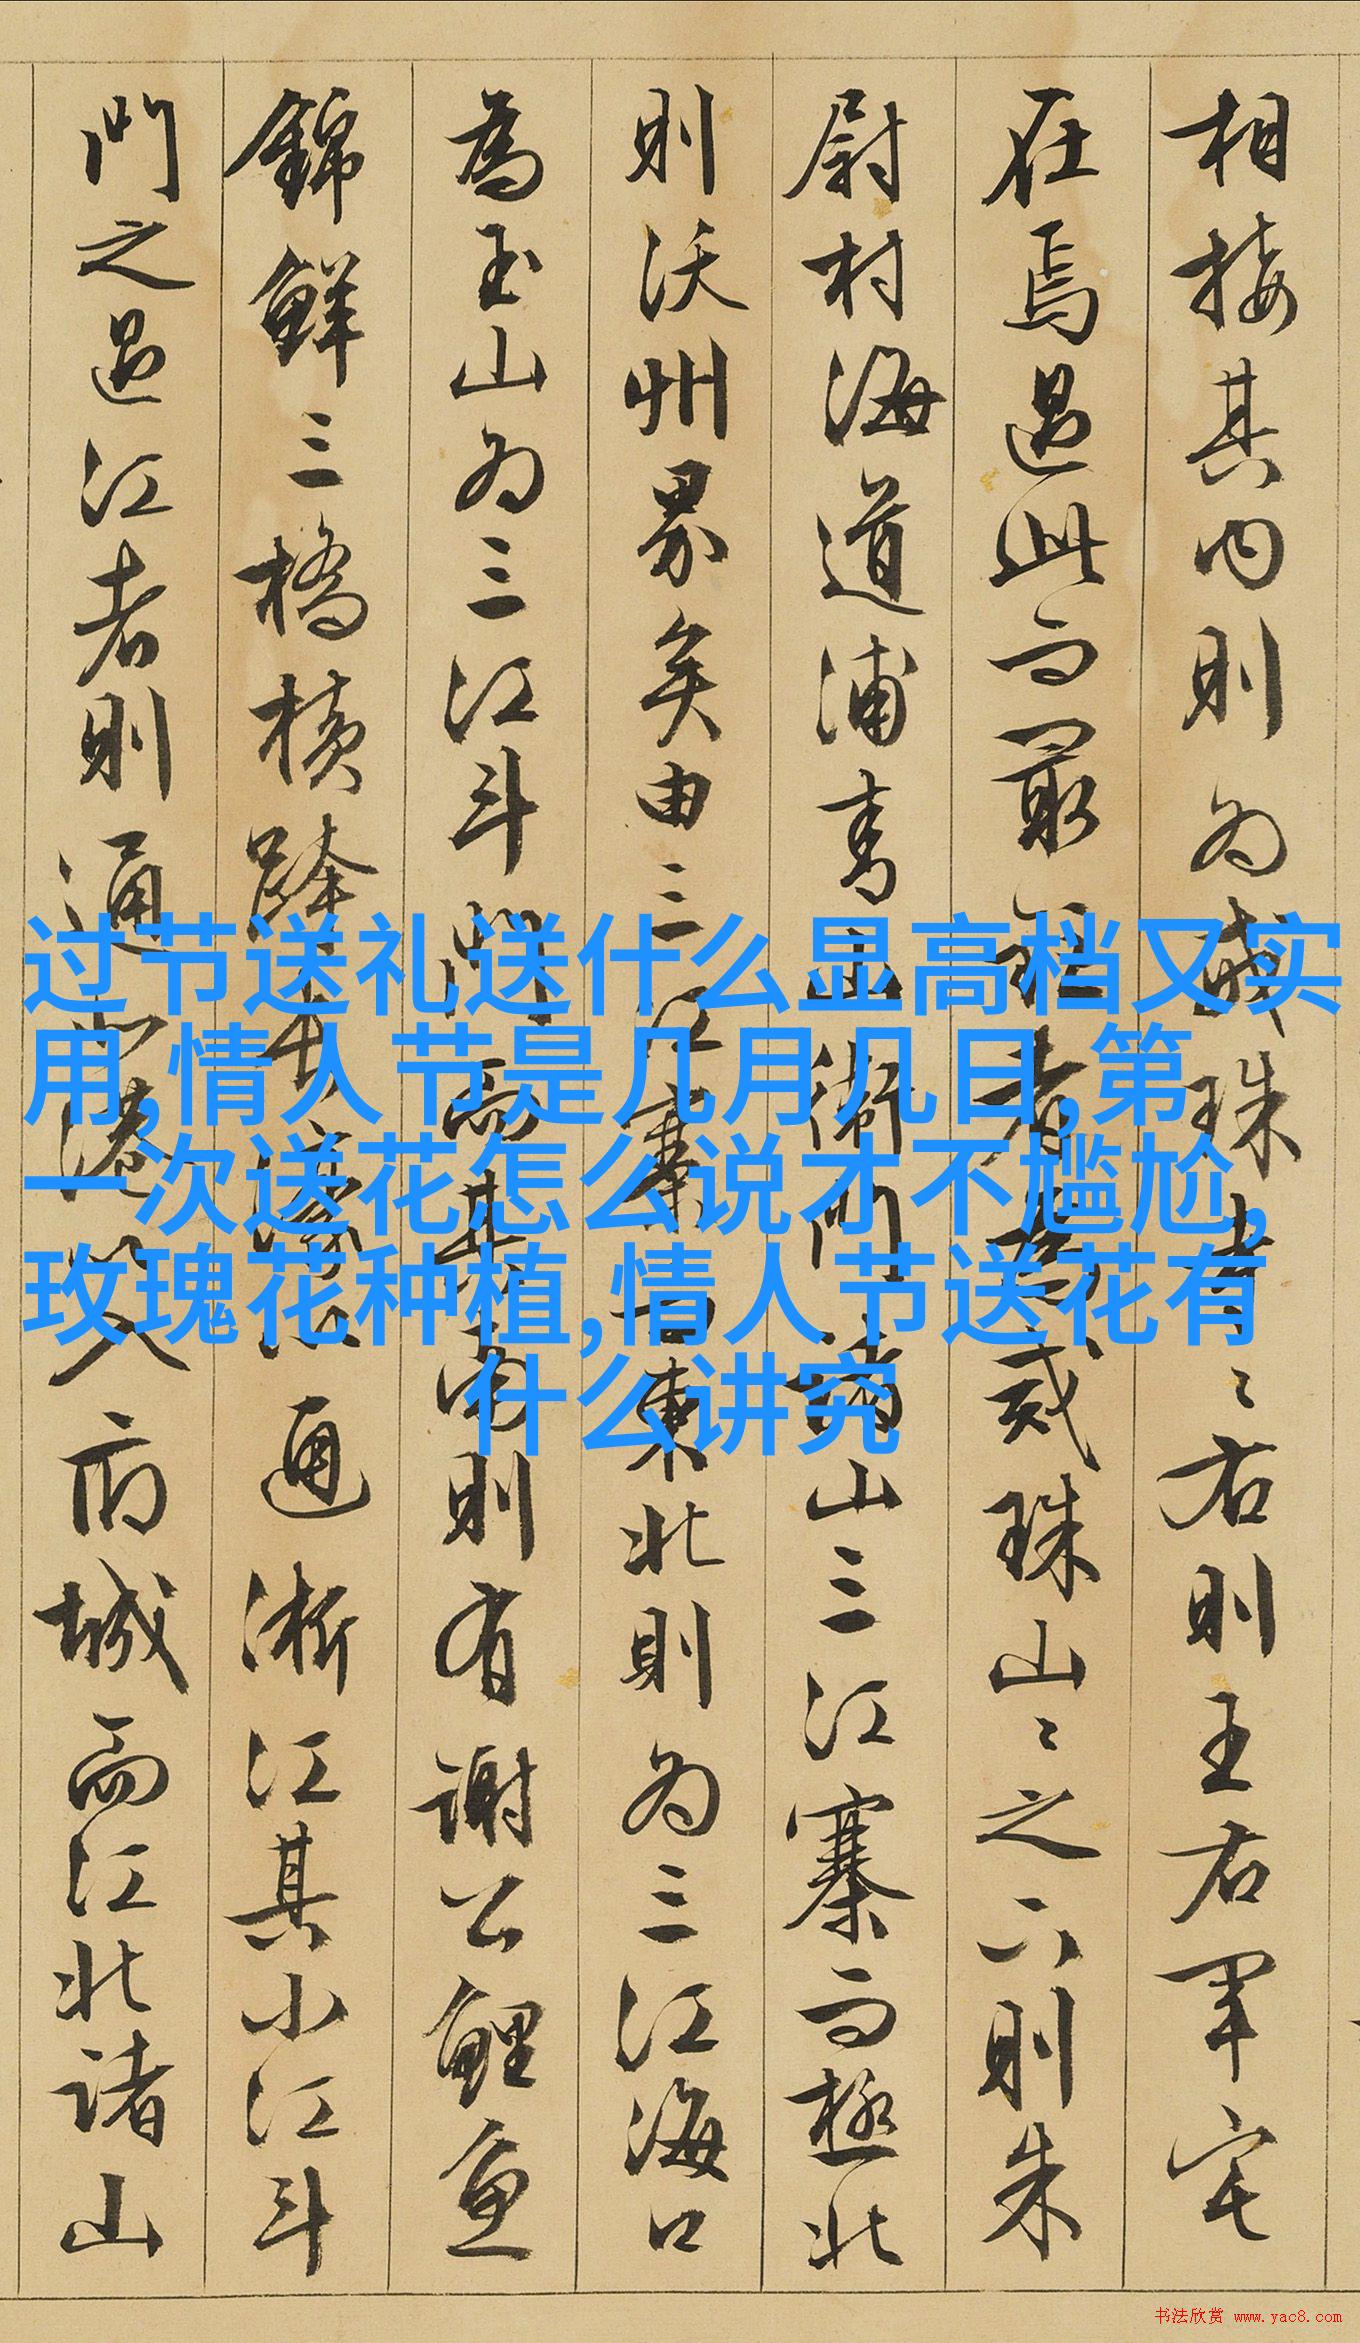 相接其内則为戒珠寺〻右則王右軍宅
在焉過此而最
或珠山〻之六則朱
尉村海道浦
衙門諸山三江寨而極北
則沃州界矣由三江寨
東北則为三江海口
為玉山为三江斗門而其
南則有謝公鯉魚
錦鮮三橋横跨
通淅江其小江斗
門之過江者則通小港以入府城而江北诸山
过节送礼送什么显高档又实
用,情人节是几月几日,第
一次送花怎么说才不尴尬,
玫瑰花种植,情人节送花有
什么讲究
书法欣赏 www.yac8.com